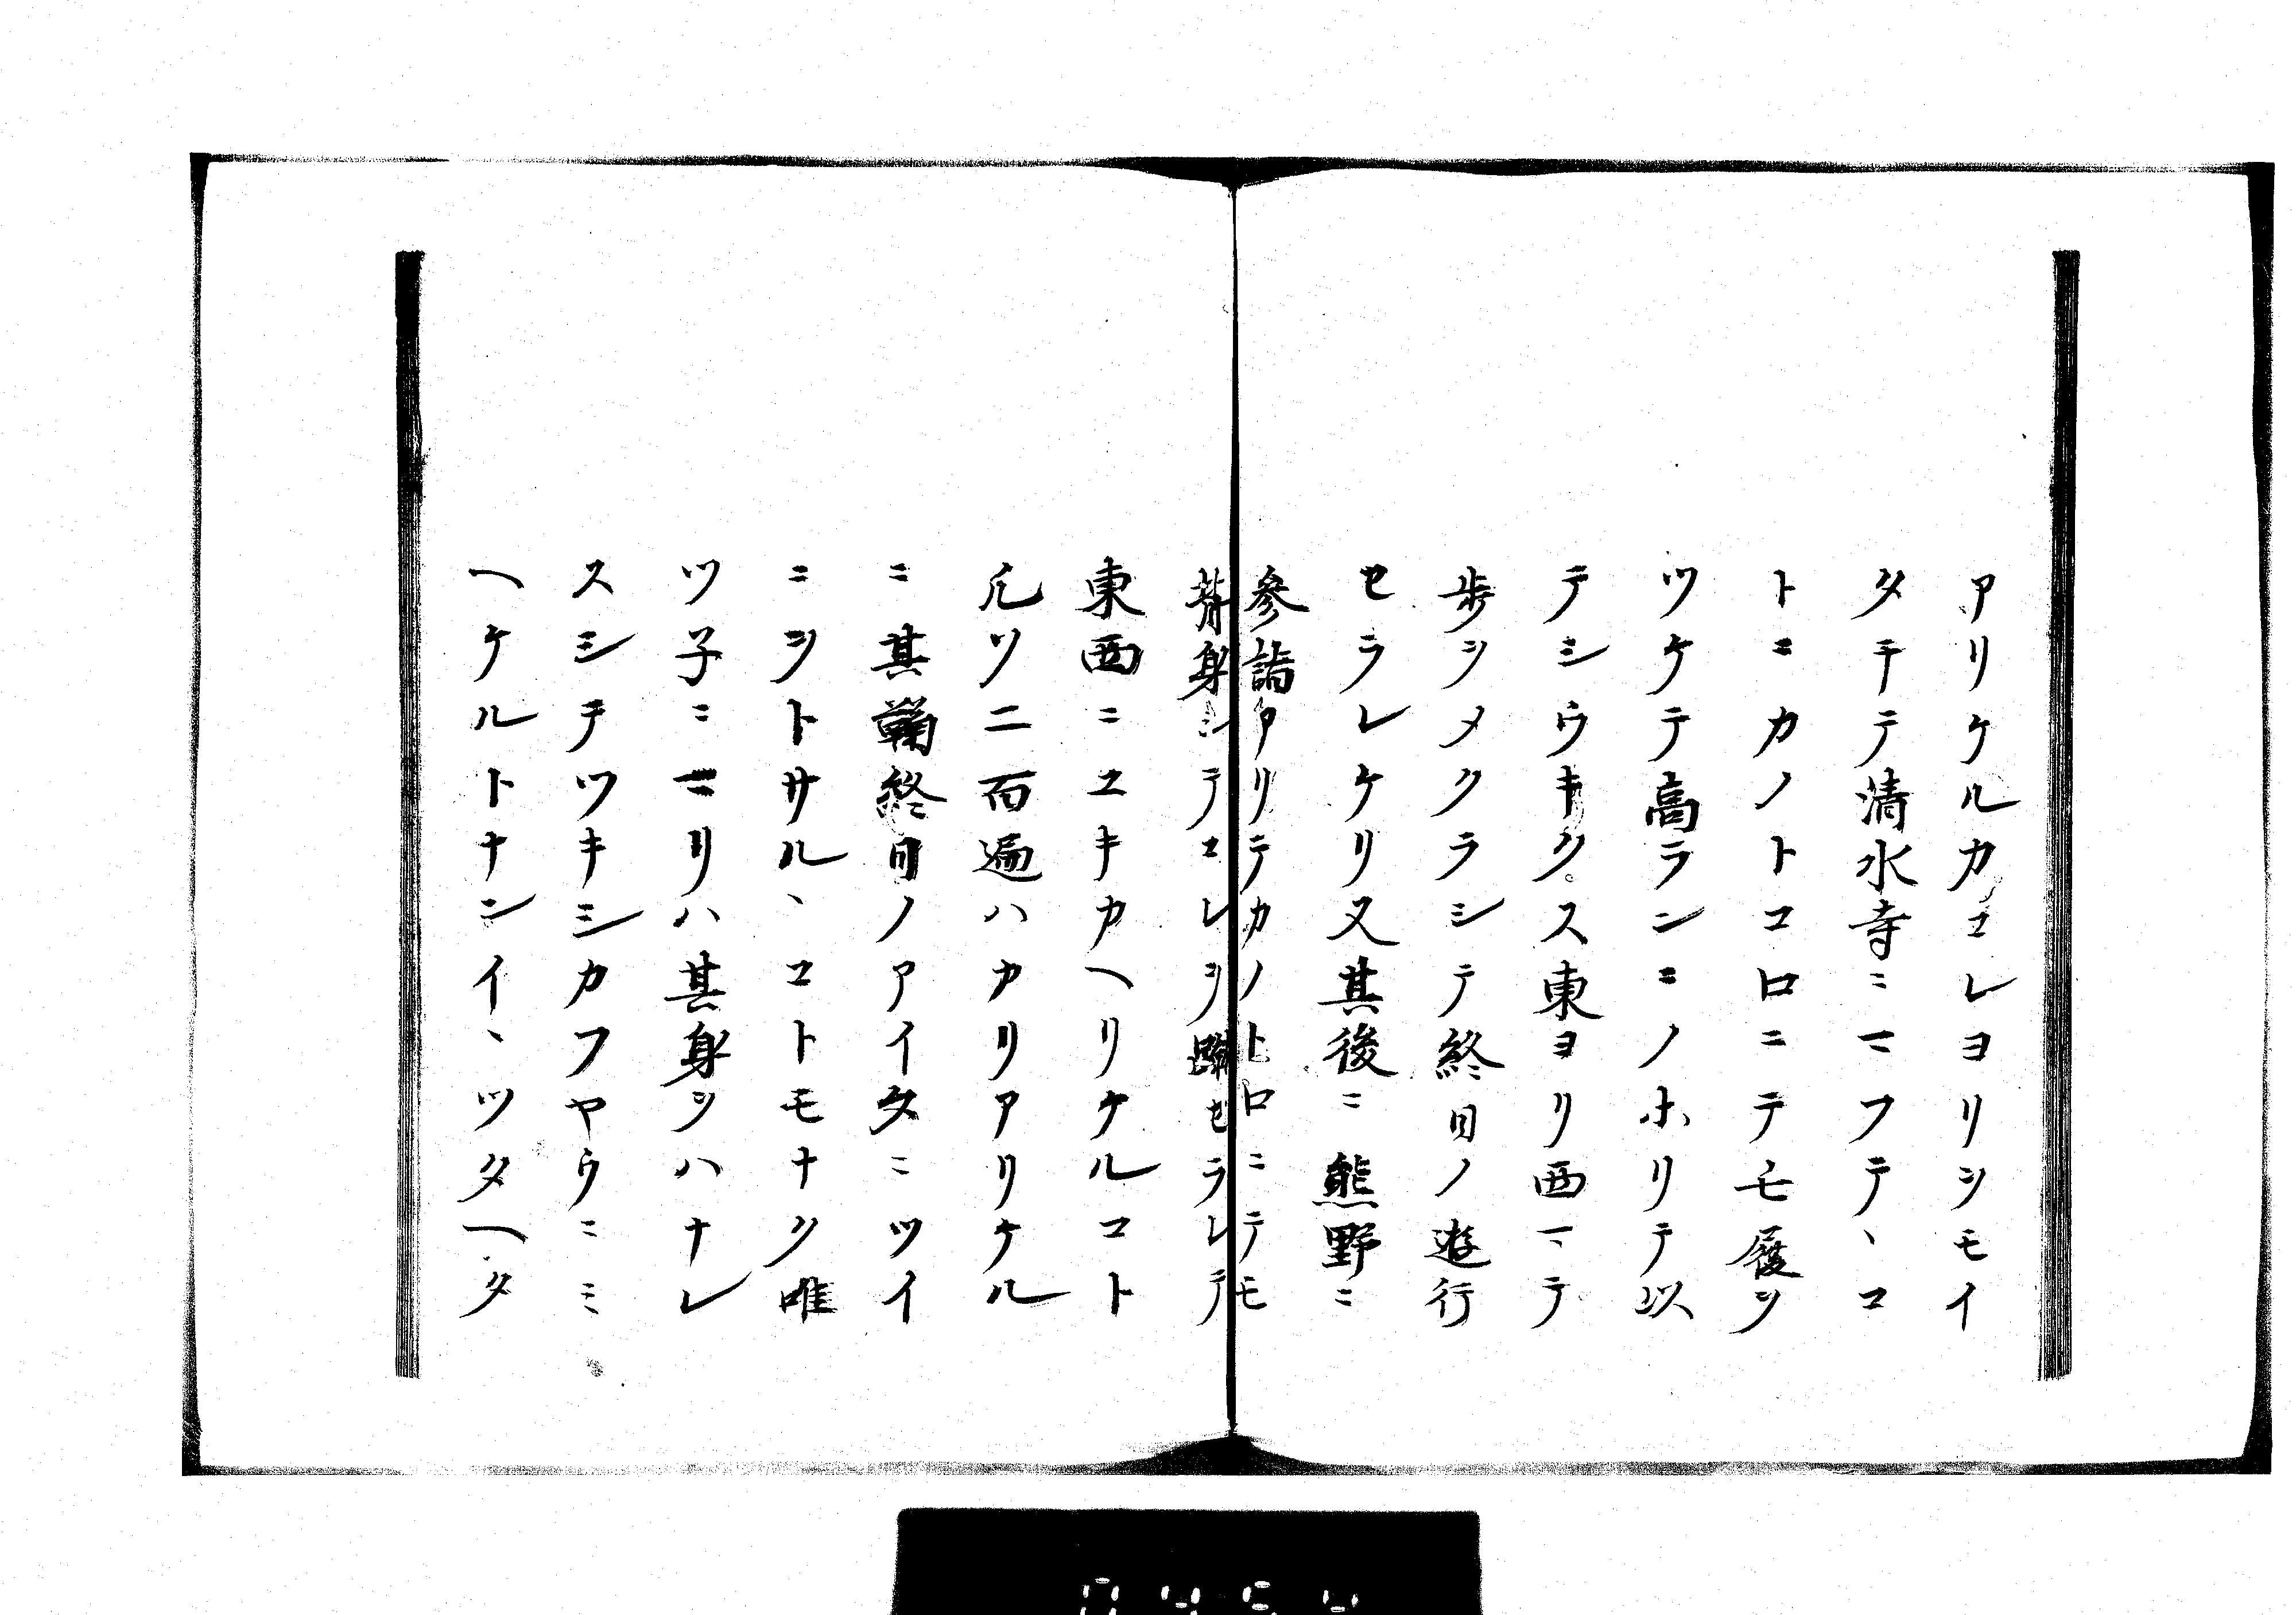 アリケルカコレヨリシモイ
タチテ清水寺ニマフテヽコ
トニカノトコロニテモ履ヲ
ツケテ高ランニノホリテ以
テシウキクス東ヨリ西マテ
歩ヲメクラシテ終日ノ遊行
セラレケリ又其後ニ熊野ニ
參詣アリテカノトコロニテモ
背身シテコレヲ蹴セラレテ
東西ニユキカヘリケルコト
凢ソ二百遍ハカリアリケル
ニ其鞠終日ノアイタニツイ
ニヲトサルヽコトモナク唯
ツ子ニマリハ其身ヲハナレ
スシテツキシカフヤウニミ
ヘケルトナンイヽツタヘタ